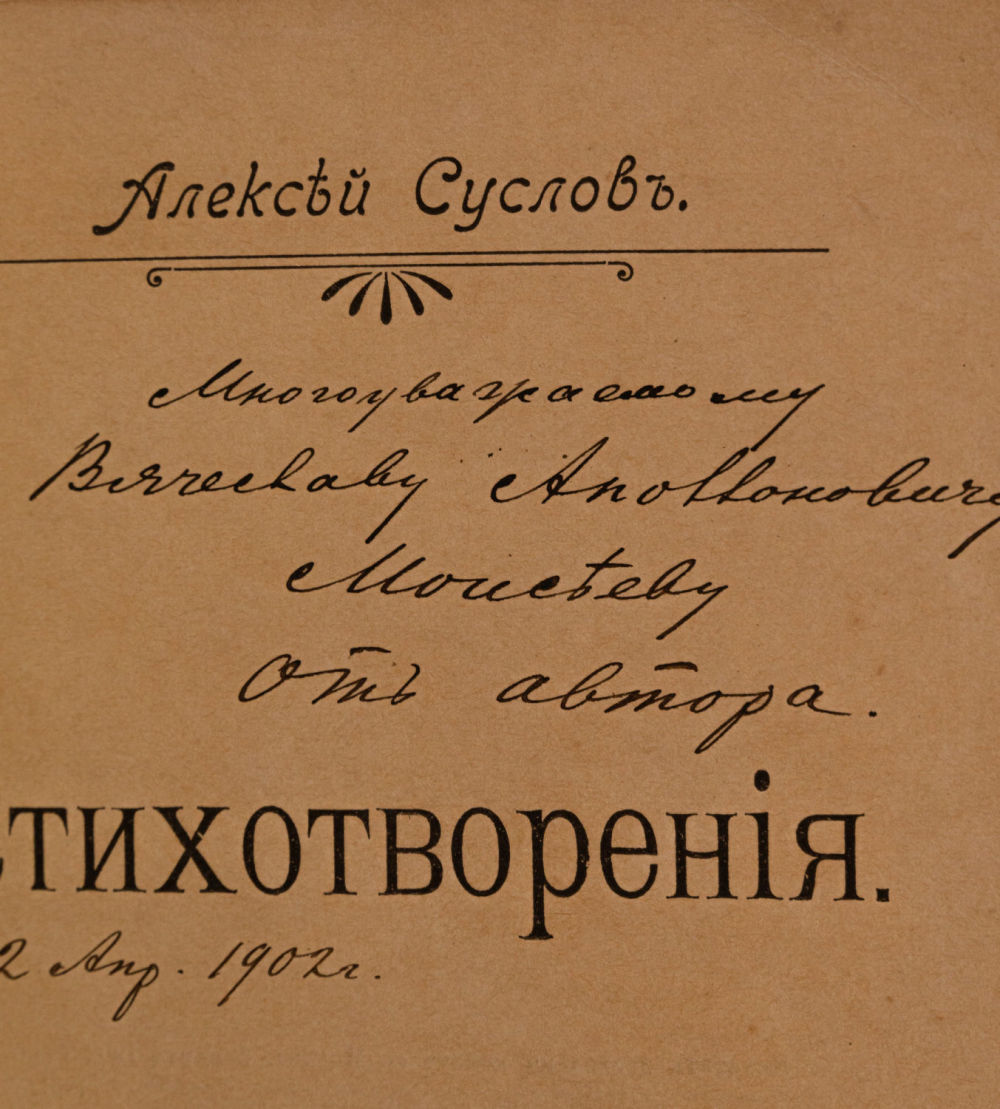 Алексѣй Сусловъ.
Многоуважаемому
Вячеславу Аполлоновичу
Моисѣеву
Отъ автора.
стихотворенія.
2 Апр. 1902г.